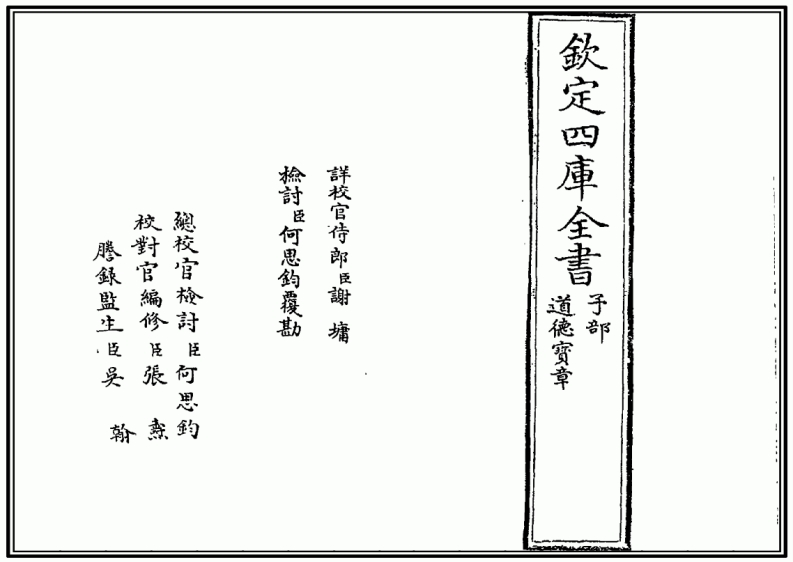 欽定四庫全書
子部
道德寶章
詳校官侍郎臣謝墉
檢討臣何思鈞覆勘
總校官檢討臣何思鈞
校對官編修臣張燾
謄錄監生臣吳翰